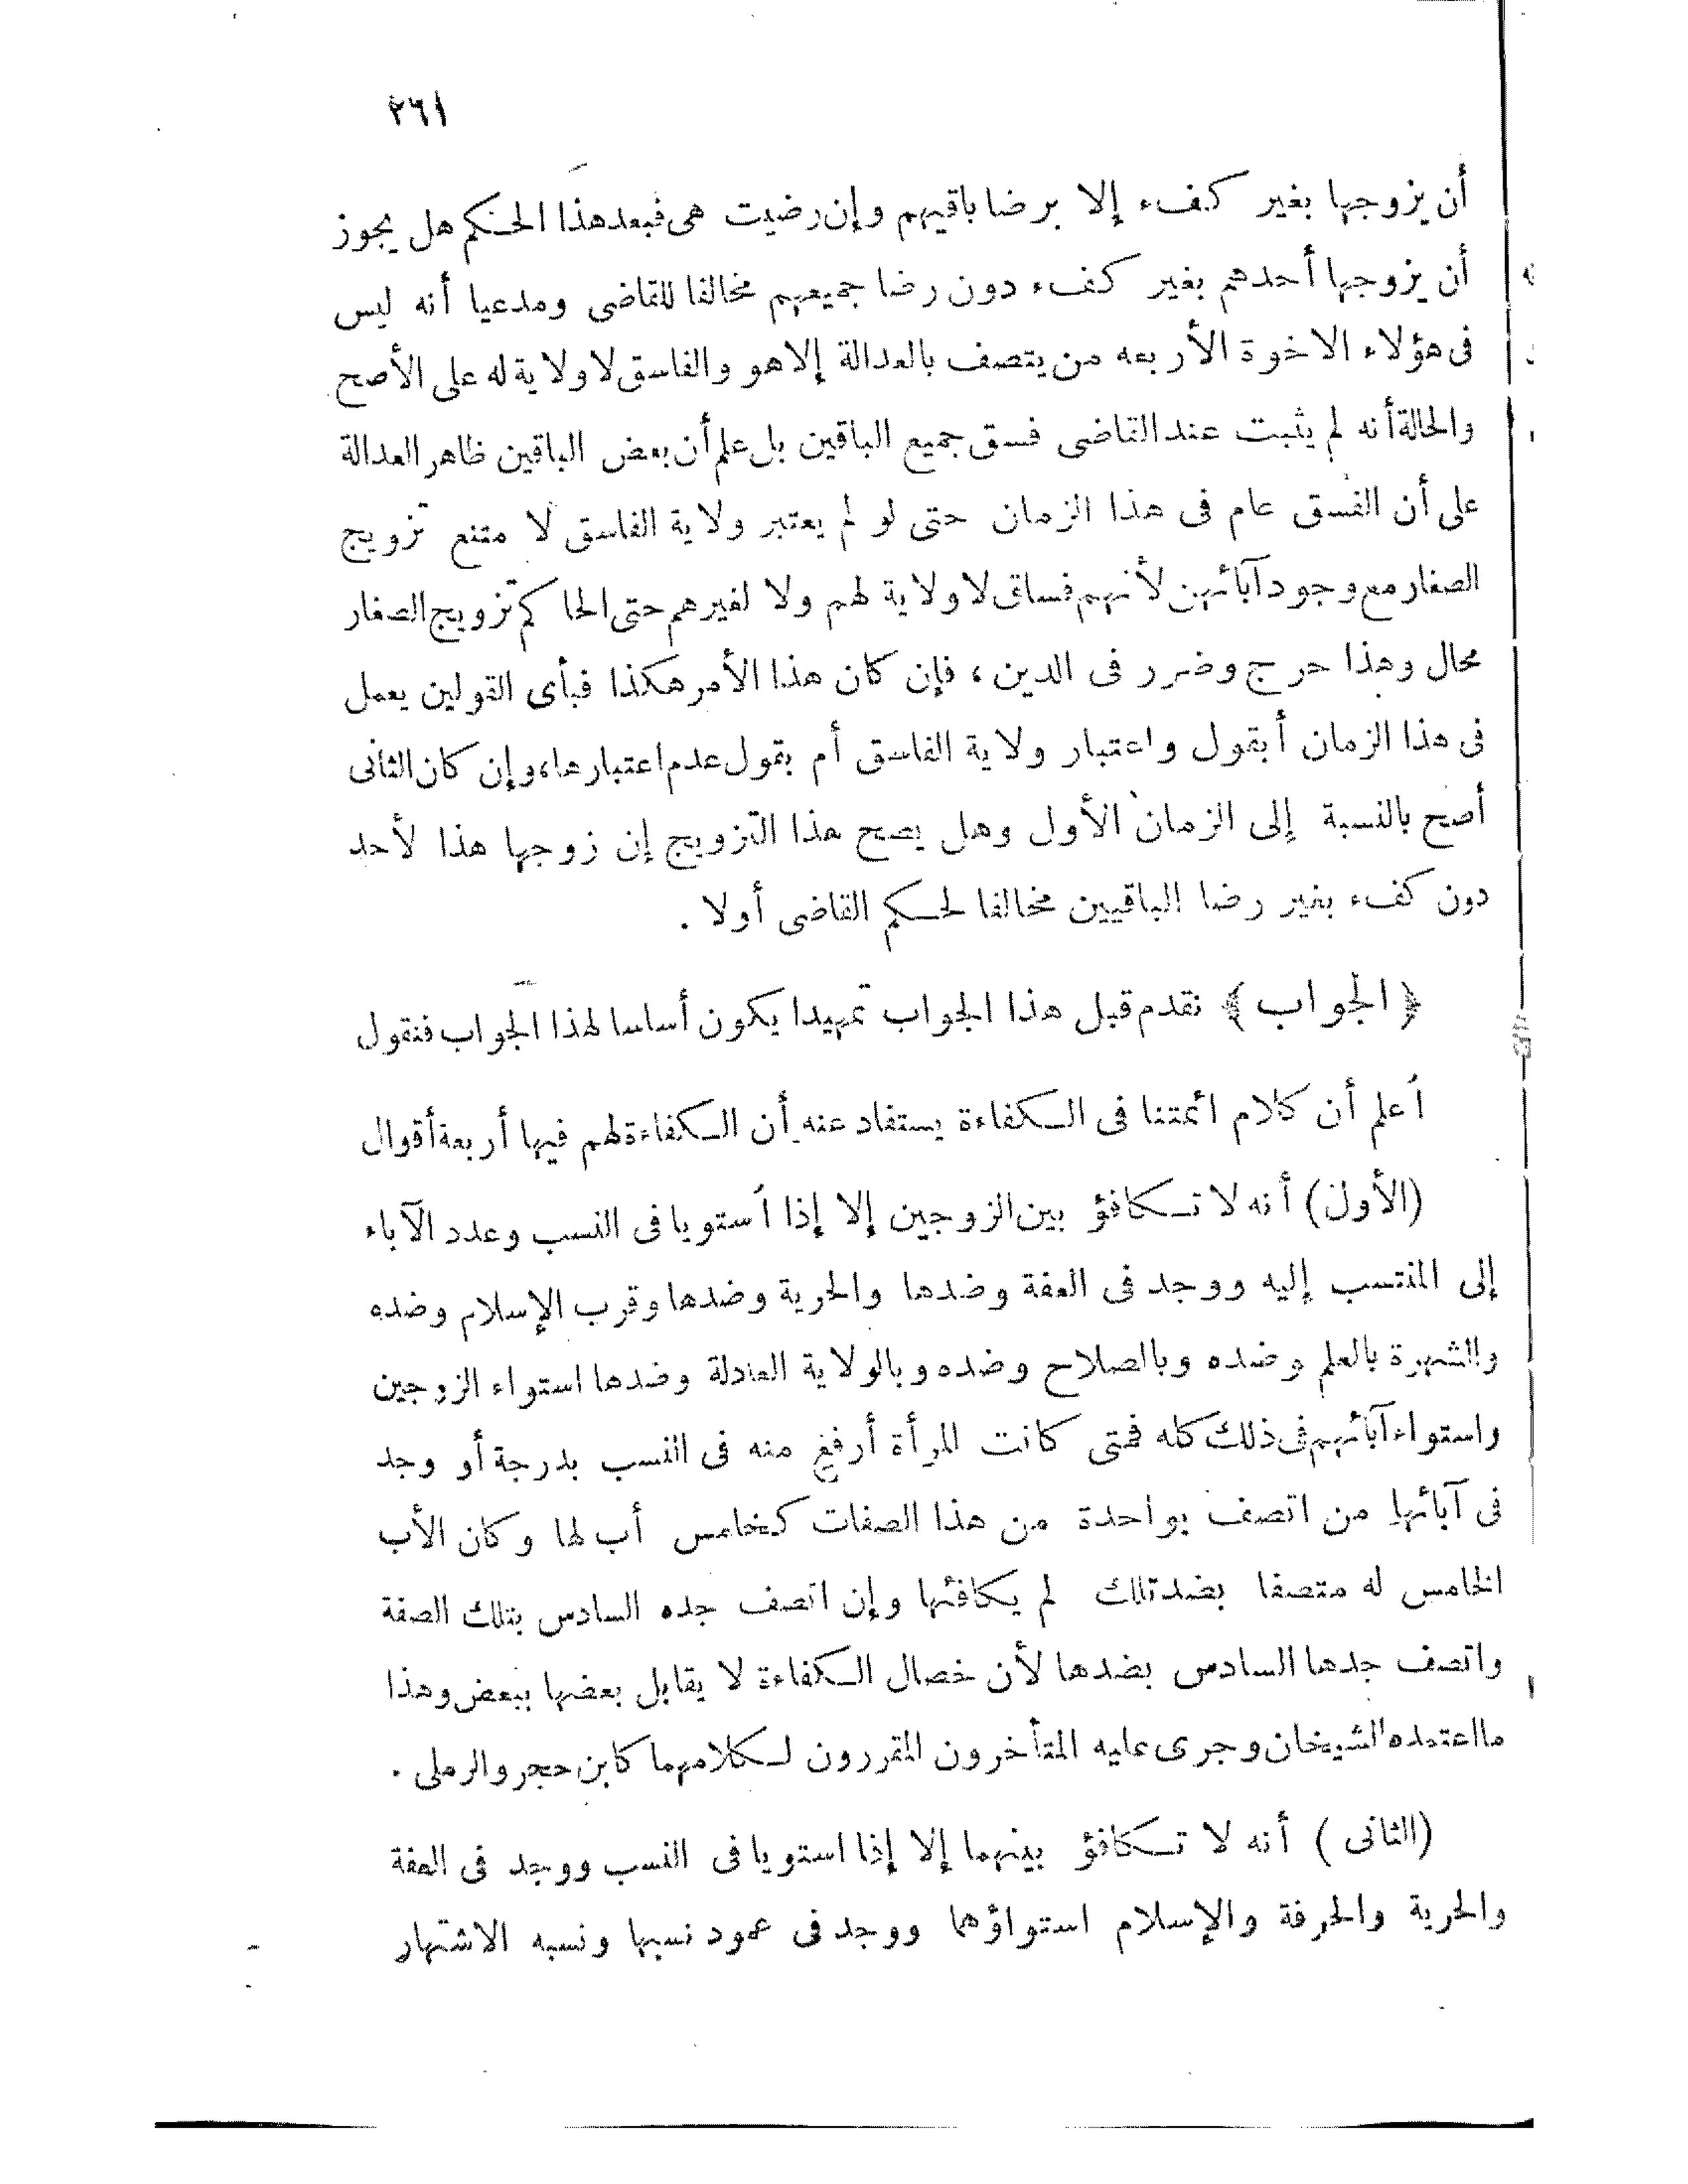 ٢٦١
أن يزوجها بغير كفء إلا برضا باقيهم وإن رضيت هى فبعد هذا الحكم هل يجوز
أن يزوجها أحدهم بغير كفء دون رضا جميعهم مخالفا للقاضى ومدعيا أنه ليس
فى هؤلاء الاخوة الأربعه من يتصف بالعدالة إلا هو والفاسق لا ولاية له على الأصح
والحالة أنه لم يثبت عند القاضى فسق جميع الباقين بل علم أن بعض الباقين ظاهر العدالة
على أن الفسق عام فى هذا الزمان حتى لو لم يعتبر ولاية الفاسق لا متنع تزويج
الصغار مع وجود آبائهن لأنهم فساق لا ولاية لهم ولا لغيرهم حتى الحاكم تزويج الصغار
محال وهذا حرج وضرر فى الدين ، فإن كان هذا الأمر هكذا فبأى القولين يعمل
فى هذا الزمان أبقول واعتبار ولاية الفاسق أم بقول عدم اعتبارها، وإن كان الثانى
أصح بالنسبة إلى الزمان الأول وهل يصح هذا التزويج إن زوجها هذا لأحد
دون كفء بغير رضا الباقيين مخالفا لحكم القاضى أولا .
﴿ الجواب ﴾ نقدم قبل هذا الجواب تمهيدا يكون أساسا لهذا الجواب فنقول
أعلم أن كلام ائمتنا فى الكفاءة يستفاد عنه أن الكفاءة لهم فيها أربعة أقوال
(الأول) أنه لا تكافؤ بين الزوجين إلا إذا أستويا فى النسب وعدد الآباء
إلى المنتسب إليه ووجد فى العفة وضدها والحرية وضدها وقرب الإسلام وضده
والشهرة بالعلم وضده وبالصلاح وضده وبالولاية العادلة وضدها استواء الزوجين
واستواء آبائهم فى ذلك كله فمتى كانت المرأة أرفع منه فى النسب بدرجة أو وجد
فى آبائها من اتصف بواحدة من هذا الصفات كخامس أب لها وكان الأب
الخامس له متصفا بضد تلك لم يكافئها وإن اتصف جده السادس بتلك الصفة
واتصف جدها السادس بضدها لأن خصال الكفاءة لا يقابل بعضها ببعض وهذا
ما اعتمده الشيخان وجرى عليه المتأخرون المقررون لكلامهما كابن حجر والرملى .
(الثانى ) أنه لا تكافؤ بينهما إلا إذا استويا فى النسب ووجد فى العفة
والحرية والحرفة والإسلام استواؤهما ووجد فى عمود نسبها ونسبه الاشتهار